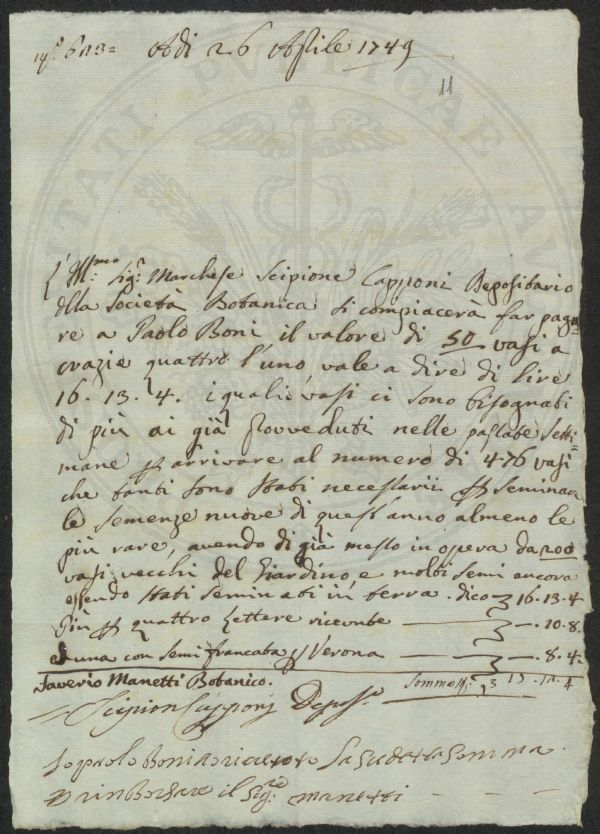 Adi 26 Aprile 1749
11
L'Ill.mo Sig.r Marchese Scipione Capponi Depositario
della Società Botanica si compiacerà far paga=
re a Paolo Boni il valore di 50 vasi a
crazie quattro l'uno vale a dire di lire
16. 13. 4. i quali vasi ci sono bisognati
di più ai già provveduti nelle passate Setti=
mane p arrivare al numero di 476 vasi
che tanti sono stati necessarii p seminare
le semenze nuove di quest'anno almeno le
più rare, avendo di già messo in opera da 200
vasi vecchi del Giardino, e molti semi ancora
essendo stati seminati in terra. dico 16.13.4
Più p quattro Lettere ricevute — . 10. 8.
ed una con semi francata p Verona — . 8. 4.
Saverio Manetti Botanico. Somma
Scipion Capponi Depos.o
Io paolo Boni ò riceuto La sudetta Somma
rinborsare il Sig.re Manetti